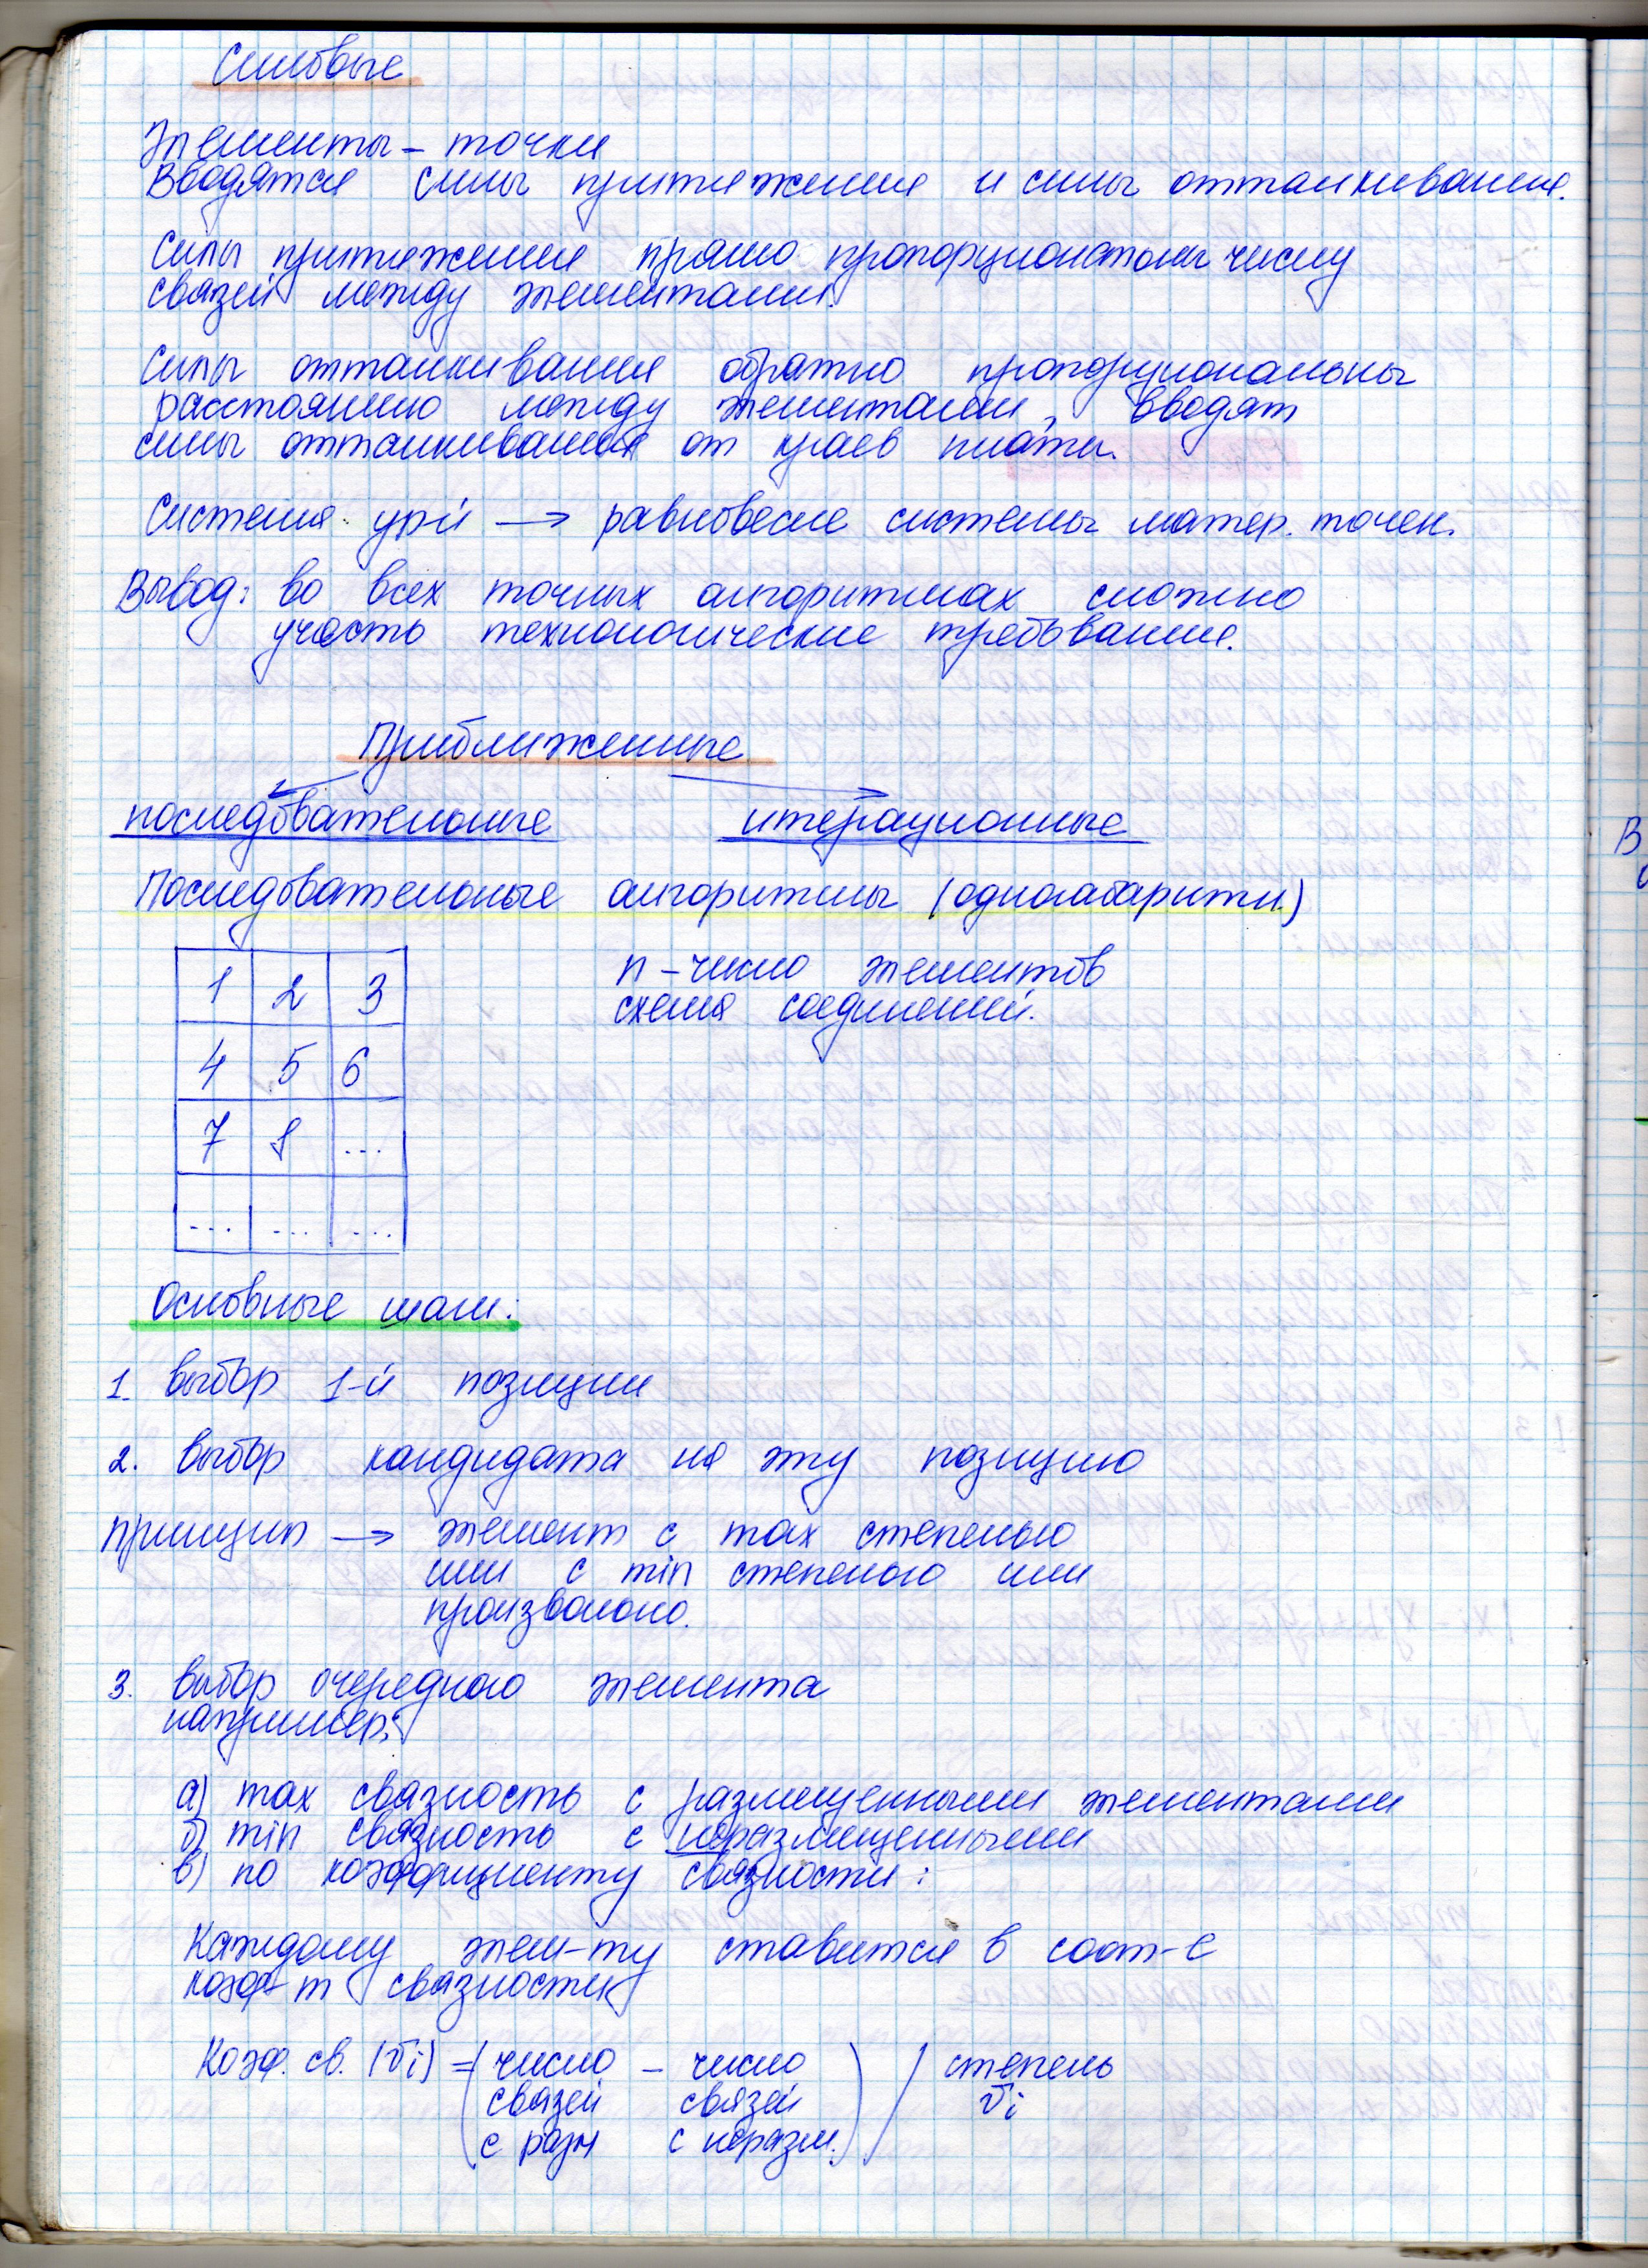 Силовые
Элементы – точки
Вводятся силы притяжения и силы отталкивания.
Силы притяжения прямо пропорциональны числу
связей между элементами.
Силы отталкивания обратно пропорциональны
расстоянию между элементами, вводят
силы отталкивания от краев платы.
Система ур-й → равновесие системы матер. точек.
Вывод: во всех точных алгоритмах сложно
учесть технологические требования.
Приближенные
последовательные итерационные
Последовательные алгоритмы (одногабаритн.)
1 2 3
n – число элементов
схема соединений.
4 5 6
7 8 ...
... ... ...
Основные шаги:
1. выбор 1-й позиции
2. выбор кандидата на эту позицию
принцип → элемент с max степенью
или с min степенью или
произвольно.
3. выбор очередного элемента
например:
а) max связность с размещенными элементами
б) min связность с неразмещенными
в) по коэффициенту связности:
Каждому элем-ту ставится в соот-е
коэф-т связности
Коэф. св. (vi) = ( число – число ) / степень
связей связей vi
с разм с неразм.